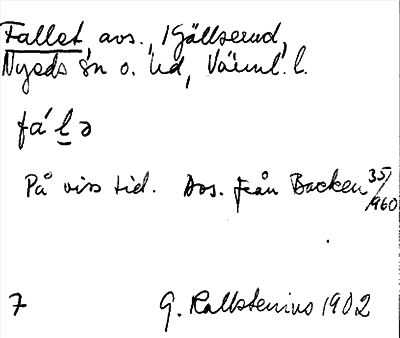 Fallet, avs., Gällserud,
Nyeds sn o. hd, Värml. l.
fa´lə
På viss tid. Avs. från Backen 35/960
7 G. Kallstenius 1902